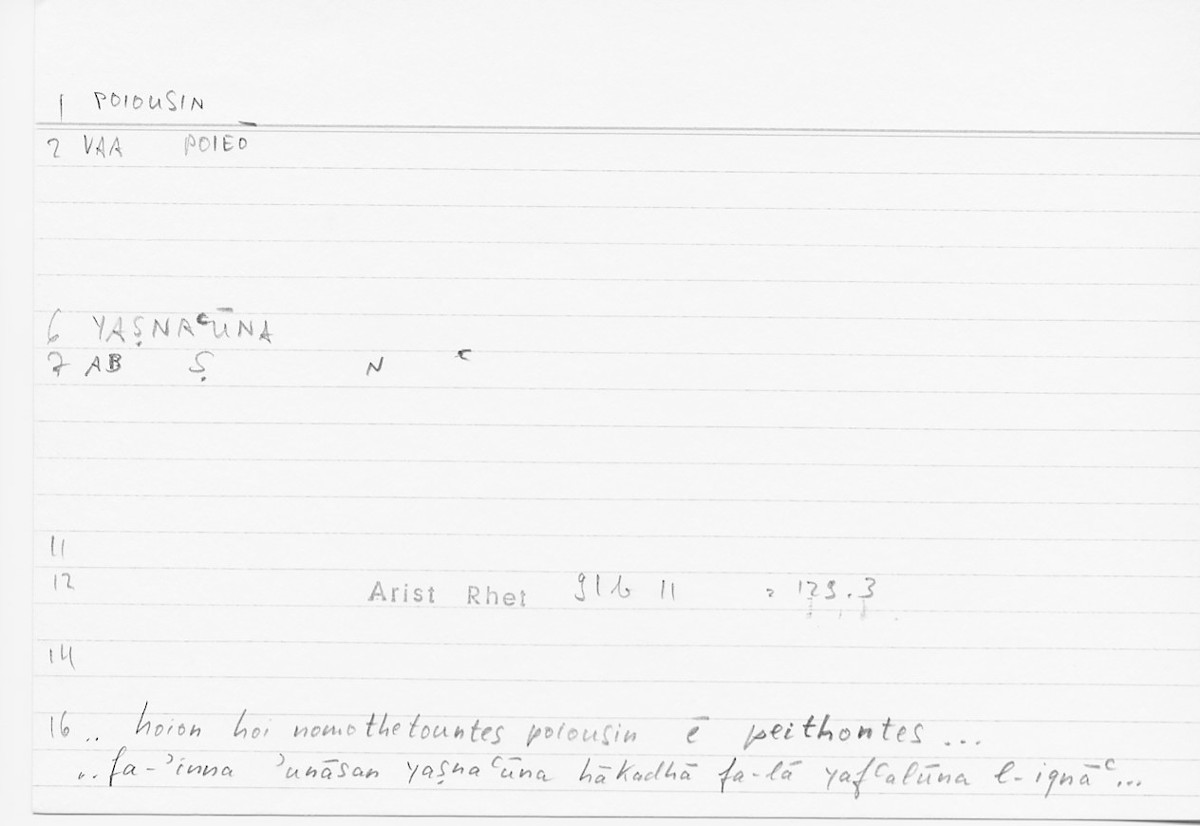 1 POIOUSIN
2 VAA POIEŌ
6 YAṢNAʿŪNA
7 AB Ṣ N ʿ
11
12 Arist Rhet 91b 11 = 129.3
14
16 .. hoion hoi nomothetountes poiousin ē peithontes ...
.. fa-ʾinna ʾunāsan yaṣnaʿūna hākadhā fa-lā yafʿalūna l-iqnāʿ...